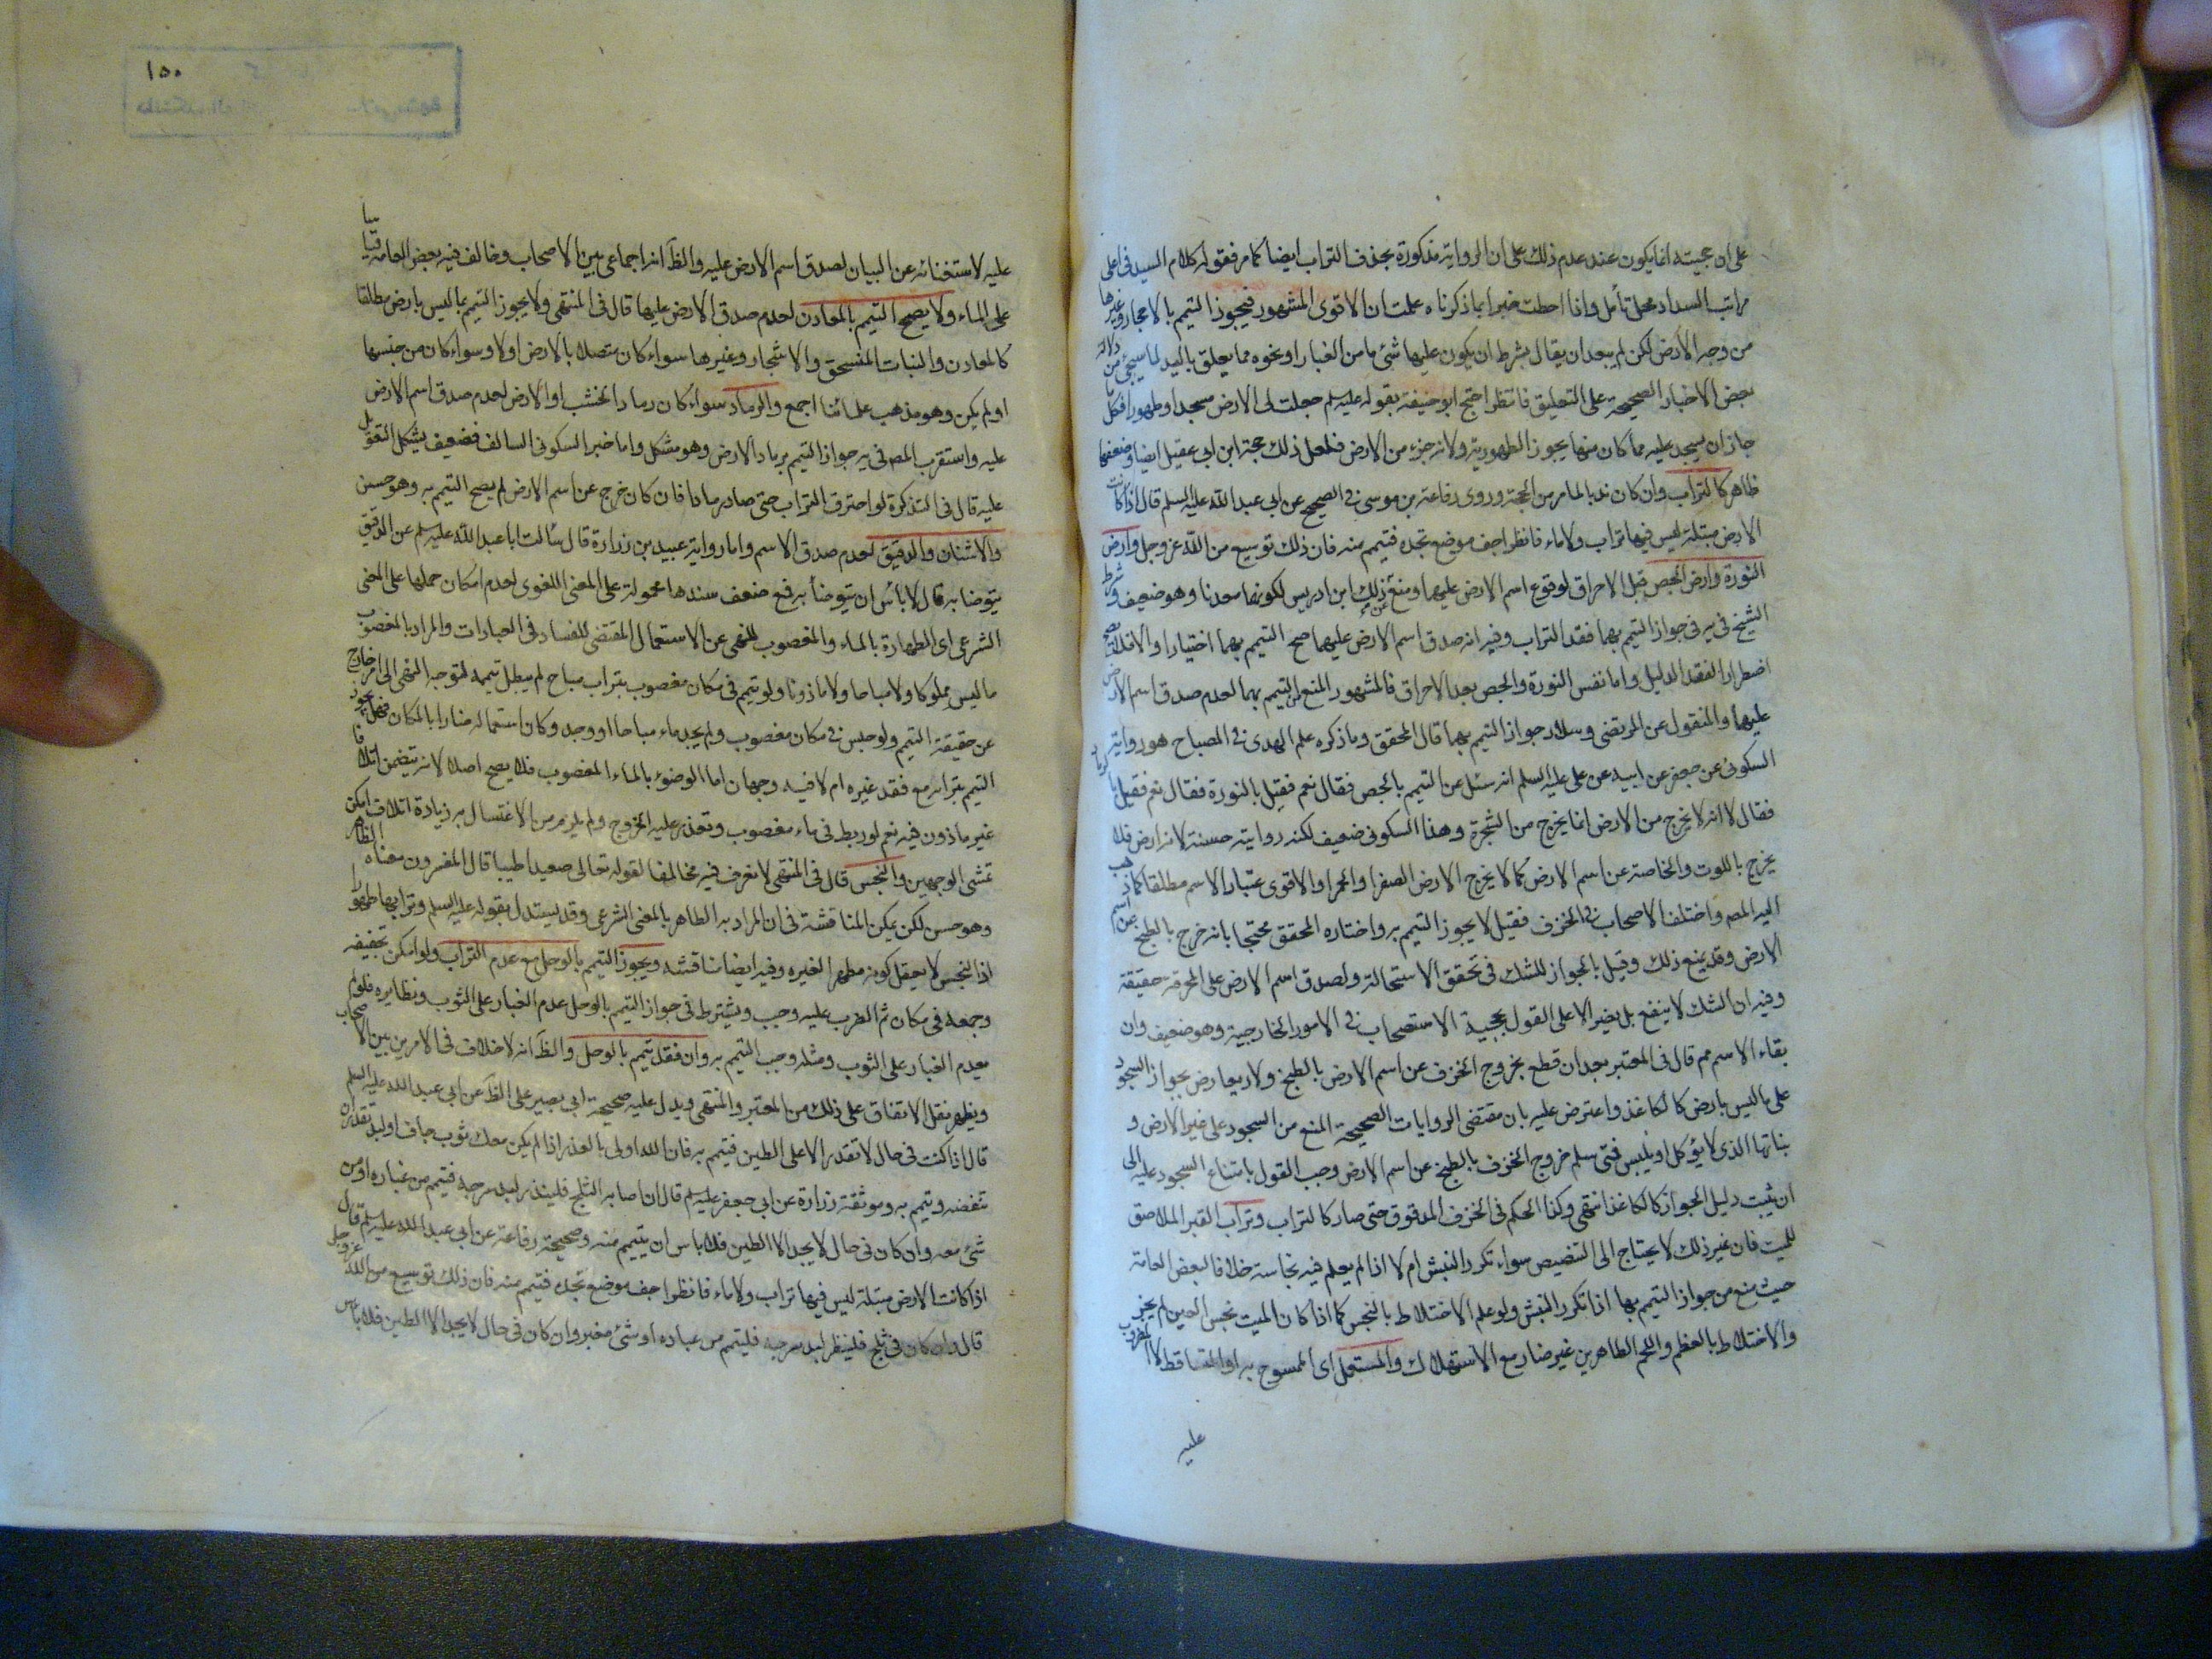 على ان حجيته انما يكون عند عدم ذلك على ان الرواية مذكورة بحذف التراب ايضا كما مر فقوله كلام السيد في اعلى
مراتب السداد محل تأمل واذا احطت خبرا بما ذكرناه علمت ان الاقوى المشهور فيجوز التيمم بالاحجار وغيرها
من وجه الأرض لكن لم يبعد ان يقال بشرط ان يكون عليها شئ ما من الغبار او نحوه مما يعلق باليد لما سيجئ من دلالة
بعض الاخبار الصحيحة على التعليق فانتظر احتج ابو حنيفة بقوله عليه سلم جعلت لى الارض مسجدا وطهورا فكل ما
جاز ان يسجد عليه مما كان منها يجوز الطهور به ولانه جزء من الارض فلعل ذلك حجة ابن ابى عقيل ايضا وضعفها
ظاهر كالتراب وان كان نديا لما مر من الحجة وروى رفاعة بن موسى فى الصحيح عن ابى عبد الله عليه السلم قال اذا كانت
الارض مبتلة ليس فيها تراب ولا ماء فانظر اجف موضع تجده فتيمم منه فان ذلك توسيع من الله عز وجل وارض
النورة وارض الجص قبل الاحراق لوقوع اسم الارض عليهما ومنع من ذلك ابن ادريس لكونها معدنا وهو ضعيف وشرط
الشيخ فى يه فى جواز التيمم بهما فقد التراب وفيه انه صدق اسم الارض عليهما صح التيمم بهما اختيارا والا فلا يصح
اضطرارا لفقد الدليل واما نفس النورة والجص بعد الاحراق فالمشهور المنع من التيمم بهما لعدم صدق اسم الارض
عليها والمنقول عن المرتضى وسلار جواز التيمم بهما قال المحقق وما ذكره علم الهدى فى المصباح هو رواية
السكونى عن جعفر عن ابيه عن على عليه السلم انه سئل عن التيمم بالجص فقال نعم فقيل بالنورة فقال نعم فقيل بالرماد
فقال لا انه لا يخرج من الارض انما يخرج من الشجرة وهذا السكونى ضعيف لكنه رواية حسنة لانه ارض فلا
يخرج باللون والخاصة عن اسم الارض كما لا يخرج الارض الصفرا والحمرا والاقوى عتبار الاسم مطلقا كما ذهب
اليه المصـ واختلف الاصحاب فى الخزف فقيل لا يجوز التيمم به واختاره المحقق محتجا بانه خرج بالطبخ عن اسم
الارض وقد يمنع ذلك وقيل بالجواز للشك فى تحقق الاستحالة ولصدق اسم الارض على المحرقة حقيقة
وفيه ان الشك لا ينفع بل يضر الا على القول بحجية الاستصحاب فى الامور الخارجية وهو ضعيف وان
بقاء الاسم مم قال فى المعتبر بعد ان قطع بخروج الخزف عن اسم الارض بالطبخ ولا يعارض بجواز السجود
على ما ليس بارض كالكاغذ واعترض عليه بان مقتضى الروايات الصحيحة المنع من السجود على غير الارض و
نباتها الذى لا يؤكل او يلبس فمتى سلم خروج الخزف بالطبخ عن اسم الارض وجب القول بامتناع السجود عليه الى
ان يثبت دليل الجواز كالكاغذ انتهى وكذا الحكم فى الخزف المدقوق حتى صار كالتراب وتراب القبر الملاصق
للميت فان غير ذلك لا يحتاج الى التنصيص سواء تكرر النبش ام لا اذا لم يعلم فيه نجاسة خلافا لبعض العامة
حيث منع من جواز التيمم بها اذا تكرر النبش ولو علم الاختلاط بالنجس كما اذا كان الميت نجس العين لم يجز
والاختلاط بالعظم واللحم الطاهرين غير ضار مع الاستهلاك والمستعمل اى الممسوح به او المتساقط لا المضروب
عليه
١٥٠
عليه لاستغنائه عن البيان لصدق اسم الارض عليه والظ انه اجماعى بين الاصحاب وخالف فيه بعض العامة قياسا
على الماء ولا يصح التيمم بالمعادن لعدم صدق الارض عليها قال فى المنتهى ولا يجوز التيمم بما ليس بارض مطلقا
كالمعادن والنبات المنسحق والاشجار وغيرها سواء كان متصلا بالارض او لا وسواء كان من جنسها
او لم يكن وهو مذهب علمائنا اجمع والرماد سواء كان رماد الخشب او الارض لعدم صدق اسم الارض
عليه واستقرب المصـ فى يه جواز التيمم برماد الارض وهو مشكل واما خبر السكونى السالف فضعيف يشكل التعويل
عليه قال فى التذكرة لو احترق التراب حتى صار رمادا فان كان خرج عن اسم الارض لم يصح التيمم به وهو حسن
والاشنان والدقيق لعدم صدق الاسم واما رواية عبيد بن زرارة قال سألت ابا عبد الله عليه سلم عن الدقيق
يتوضا به قال لا بأس ان يتوضأ به فمع ضعف سندها محمولة على المعنى اللغوى لعدم امكان حملها على المعنى
الشرعى اى الطهارة بالماء والمغصوب للنهى عن الاستعمال المقتضى للفساد فى العبارات والمراد بالمغصوب
ما ليس مملوكا ولا مباحا ولا ماذونا ولو تيمم فى مكان مغصوب بتراب مباح لم يبطل تيممه لتوجه النهى الى امر خارج
عن حقيقة التيمم ولو حبس فى مكان مغصوب ولم يجد ماء مباحا او وجد وكان استعماله مضارا بالمكان فهل يجوز
التيمم بترابه مع فقد غيره ام لا فيه وجهان اما الوضؤ بالماء المغصوب فلا يصح اصلا لانه يتضمن اتلافا
غير ماذون فيه نعم لو ربط فى ماء مغصوب وتعذر عليه الخروج ولم يلزم من الاغتسال به زيادة اتلاف امكن
تمشى الوجهين والنجس قال فى المنتهى لا نعرف فيه مخالفا لقوله تعالى صعيدا طيبا قال المفسرون معناه الطاهر
وهو حسن لكن يمكن المناقشة فى ان المراد به الطاهر بالمعنى الشرعى وقد يستدل بقوله عليه السلم وترابها طهورا
اذ النجس لا يعقل كونه مطهرا لغيره وفيه ايضا مناقشة ويجوز التيمم بالوحل مع عدم التراب ولو امكن تجفيفه
وجمعه فى مكان ثم الضرب عليه وجب ويشترط فى جواز التيمم بالوحل عدم الغبار على الثوب ونظايره فلو لم
يعدم الغبار على الثوب ومثله وجب التيمم به وان فقد تيمم بالوحل والظ انه لا خلاف فى الامرين بين الاصحاب
ويظهر نقل الاتفاق على ذلك من المعتبر والمنتهى ويدل عليه صحيحة ابى بصير على الظ عن ابى عبد الله عليه السلم
قال اذا كنت فى حال لا تقدر الا على الطين فتيمم به فان الله اولى بالعذر اذا لم يكن معك ثوب جاف او لبد تقدر ان
تنفضه وتيمم به وموثقة زرارة عن ابى جعفر عليه سلم قال ان اصابه الثلج فلينظر لبد سرجه فتيمم من غباره او من
شئ معه وان كان فى حال لا يجد الا الطين فلا باس ان يتيمم منه وصحيحة رفاعة عن ابى عبد الله عليه سلم قال
اذا كانت الارض مبتلة ليس فيها تراب ولا ماء فانظر اجف موضع تجده فتيمم منه فان ذلك توسيع من الله عز وجل
قال وان كان فى ثلج فلينظر لبد سرجه فليتمم من غباره او شئ مغبر وان كان فى حال لا يجد الا الطين فلا باس